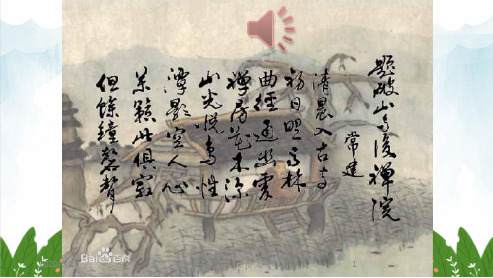 題破山寺後禪院
常建
清晨入古寺
初日照高林
曲徑通幽處
禪房花木深
山光悅鳥性
潭影空人心
萬籟此俱寂
但餘鐘磬聲
Bai百科
1